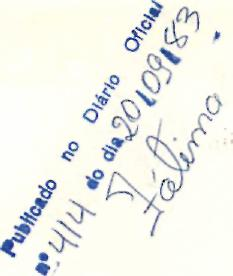 Publicado no Diário Oficial
nº 414 do dia 20/09/83.
Fátima